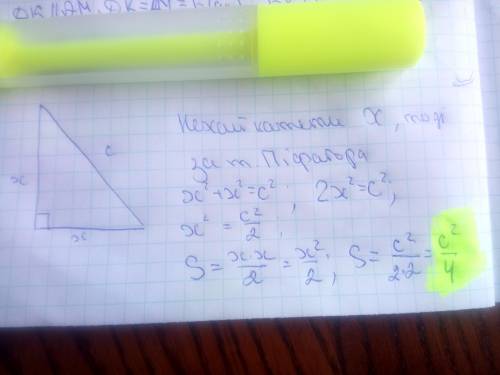 c
x
x
Нехай катети x, тоді
за т. Піфагора
x²+x²=c²; 2x²=c²;
x² = c²/2;
S = x·x/2 = x²/2; S = c²/2·2 = c²/4